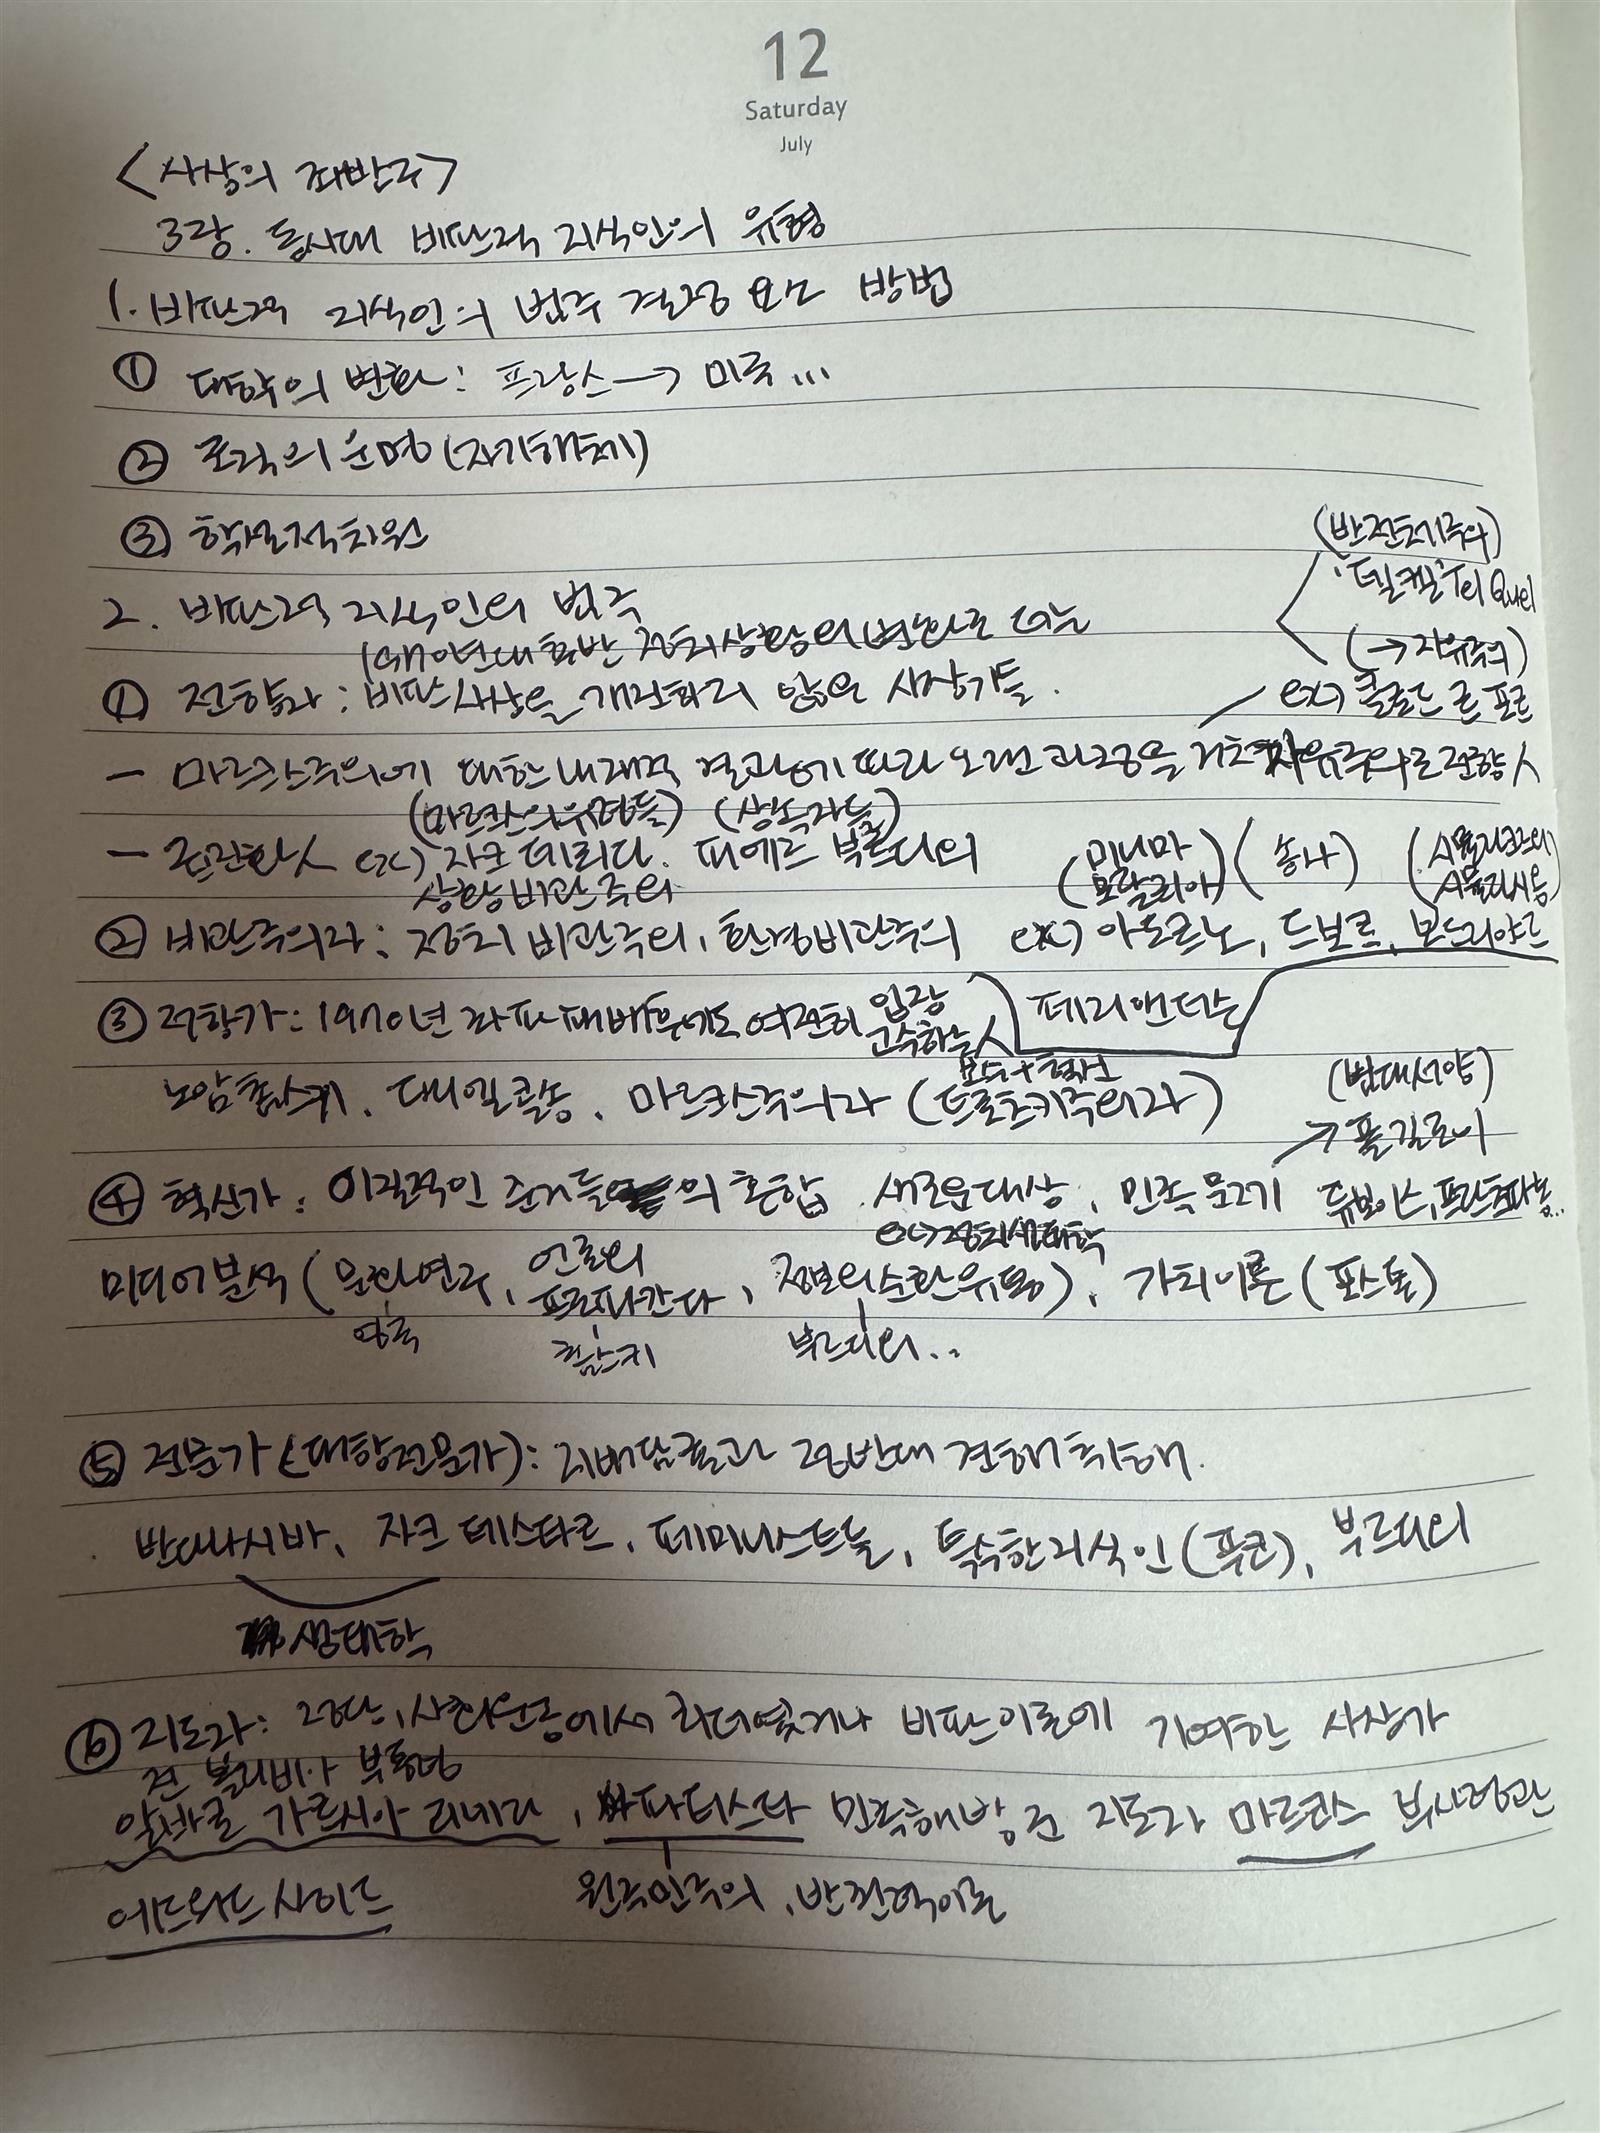 12
Saturday
July
<사상의 좌반구>
3장. 동시대 비판적 지식인의 유형
1. 비판적 지식인의 범주 결정 요소 방법
① 대학의 변화: 프랑스 → 미국...
② 조직의 운명(자기해체)
③ 학문적 차원
(반전체주의)
'텔켈' Tel Quel
2. 비판적 지식인의 범주
(→자유주의)
1970년대 후반 정치상황의 변화로 더는
① 전향자: 비판사상을 개진하지 않은 사상가들.
ex) 클로드 르포르
- 마르크스주의에 대한 내재적 결과에 따라 오랜 과정을 거쳐 자유주의로 전향人
(마르크스의 유령들) (상속자들)
- 급진화人 ex) 자크 데리다. 피에르 부르디외
(미니마 모랄리아) (총서) (시뮬라크르와 시뮬라시옹)
상황비관주의
② 비관주의자: 정치 비관주의, 환경비관주의 ex) 아도르노, 드보르, 보드리야르
③ 저항가: 1970년 좌파 패배 후에도 여전히 입장 고수하는 人
페리앤더슨
보수+혁신
노암촘스키, 대니얼 , 마르크스주의자 (트로츠키주의자)
(범대서양)
→ 폴 길로이
④ 혁신가: 이질적인 준거들의 혼합. 새로운 대상, 민족 문제 듀보이스, 프란츠파농...
ex) 정치생태학
미디어분석 (문화연구, 언론의 프로파간다, 정보의 순환유통), 가치이론 (포스톤)
영국
촘스키
부르디외..
⑤ 전문가 (대항전문가): 지배담론과 정반대 견해 취해.
반다나시바, 자크 테스타르, 페미니스트들, 특수한 지식인 (푸코), 부르디외
생태학
⑥ 지도자: 정당, 사회운동에서 리더였거나 비판이론에 기여한 사상가
전 볼리비아 부통령
알바로 가르시아 리네라, 사파티스타 민족해방군 지도자 마르코스 부사령관
에드워드 사이드
원주민주의, 반권력이론